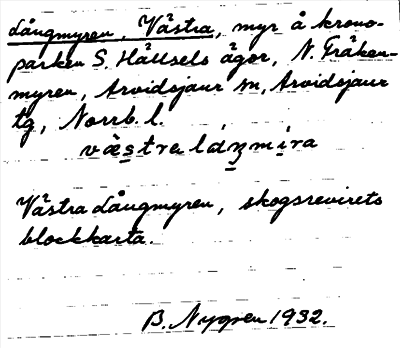 Långmyren, Västra, myr å krono-
parken S. Hällsels ägor, N. Tråken-
myren, Arvidsjaur sn, Arvidsjaur
tg, Norrb. l.
västre láŋmira
Västra Långmyren, skogsrevirets
blockkarta.
B. Nygren 1932.